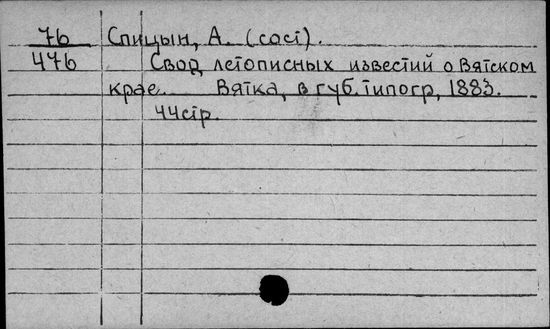 76 Спицын, А. (сост).
476 Свод летописных известий о Вятском
крае. Вятка, в губ. типогр, 1883.
44стр.